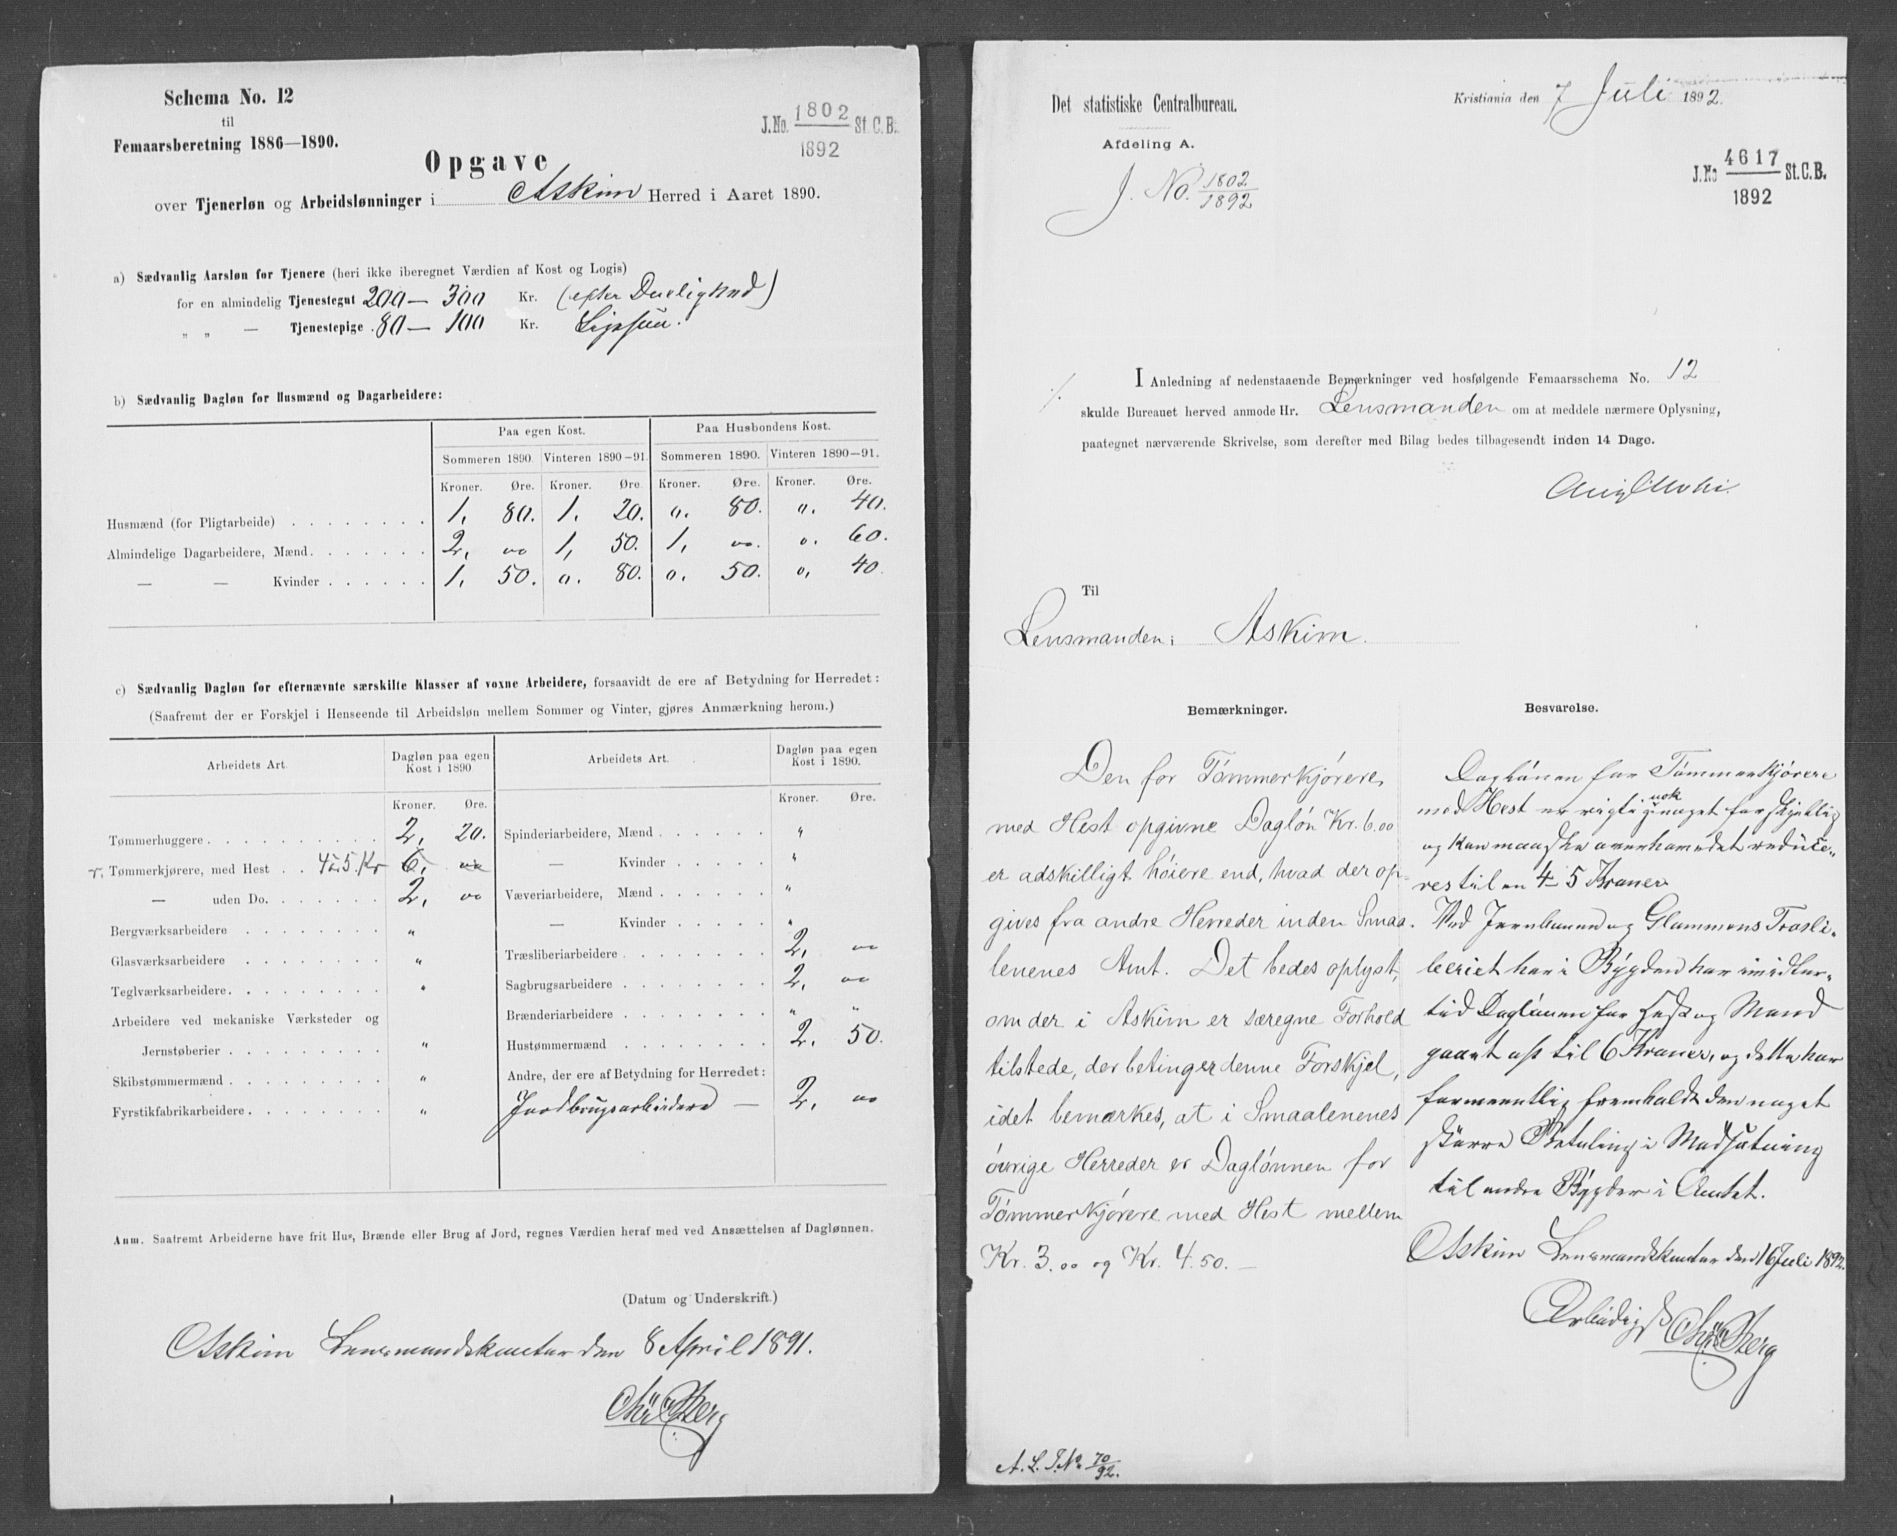 Schema No. 12
til
Femaarsberetning 1886—1890.
J.No. 1802 St.C.B.
1892
Opgave
over Tjenerløn og Arbeidslønninger i Askim Herred i Aaret 1890.
a) Sædvanlig Aarsløn for Tjenere (heri ikke iberegnet Værdien af Kost og Logis)
for en almindelig Tjenestegut 200 — 300 Kr. (efter Duelighed)
„ „ — Tjenestepige 80 — 100 Kr. Ligesaa.
b) Sædvanlig Dagløn for Husmænd og Dagarbeidere:
Paa egen Kost. Paa Husbondens Kost.
Sommeren 1890. Vinteren 1890—91. Sommeren 1890. Vinteren 1890—91.
Kroner. Øre. Kroner. Øre. Kroner. Øre. Kroner. Øre.
Husmænd (for Pligtarbeide) 1, 80. 1, 20. „. 80. „. 40.
Almindelige Dagarbeidere, Mænd. 2, 00 1, 50. 1, 00. „. 60.
— — Kvinder 1, 50. „. 80. „. 50. „, 40
c) Sædvanlig Dagløn for efternævnte særskilte Klasser af voxne Arbeidere, forsaavidt de ere af Betydning for Herredet:
(Saafremt der er Forskjel i Henseende til Arbeidsløn mellem Sommer og Vinter, gjøres Anmærkning herom.)
Arbeidets Art. Dagløn paa egen Kost i 1890. Arbeidets Art. Dagløn paa egen Kost i 1890.
Kroner. Øre. Kroner. Øre.
Tømmerhuggere 2, 20. Spinderiarbeidere, Mænd „
r. Tømmerkjørere, med Hest 4 à 5 Kr 6, 00 — Kvinder „
— uden Do. 2, 00 Væveriarbeidere, Mænd „
Bergværksarbeidere „ — Kvinder „
Glasværksarbeidere „ Træsliberiarbeidere 2, 00
Teglværksarbeidere „ Sagbrugsarbeidere 2, 00
Arbeidere ved mekaniske Værksteder og Brænderiarbeidere „ „
Jernstøberier „ Hustømmermænd 2. 50.
Skibstømmermænd „ Andre, der ere af Betydning for Herredet:
Fyrstikfabrikarbeidere „ Jordbrugsarbeidere — 2, 00
Anm. Saafremt Arbeiderne have frit Hus, Brænde eller Brug af Jord, regnes Værdien heraf med ved Ansættelsen af Daglønnen.
(Datum og Underskrift.)
Askim Lensmandskontor den 8 April 1891.
Chr. Berg
Det statistiske Centralbureau.
Afdeling A.
J. No. 1802
1892
Kristiania den 7 Juli 1892.
J.No 4617 St.C.B.
1892
I Anledning af nedenstaaende Bemærkninger ved hosfølgende Femaarsschema No. 12
./. skulde Bureauet herved anmode Hr. Lensmanden om at meddele nærmere Oplysning,
paategnet nærværende Skrivelse, som derefter med Bilag bedes tilbagesendt inden 14 Dage.
Til
Lensmanden i Askim.
Bemærkninger.
Den for Tømmerkjørere
med Hest opgivne Dagløn Kr. 6.00
er adskilligt høiere end, hvad der op-
gives fra andre Herreder inden Smaa-
lenenes Amt. Det bedes oplyst,
om der i Askim er særegne Forhold
tilstede, der betinger denne Forskjel,
idet bemærkes, at i Smaalenenes
øvrige Herreder er Daglønnen for
Tømmerkjørere med Hest mellem
Kr. 3.00 og Kr. 4.50. —
Besvarelse.
Daglønen for Tømmerkjørere
med Hest er rigtignok noget forskjellig
og kan maaske overhovedet reduce-
res til en 4 à 5 Kroner.
Ved Jernbanen og Glommens Træsli-
beriet her i Bygden har imidler-
tid Daglønen for Hest og Mand
gaaet op til 6 Kroner, og dette har
formentlig fremholdt den noget
større Betaling i Modsætning
til andre Bygder i Amtet.
Askim Lensmandskontor den 16 Juli 1892.
Ærbødigst
Chr. Berg
A. L. J.No. 70
92.